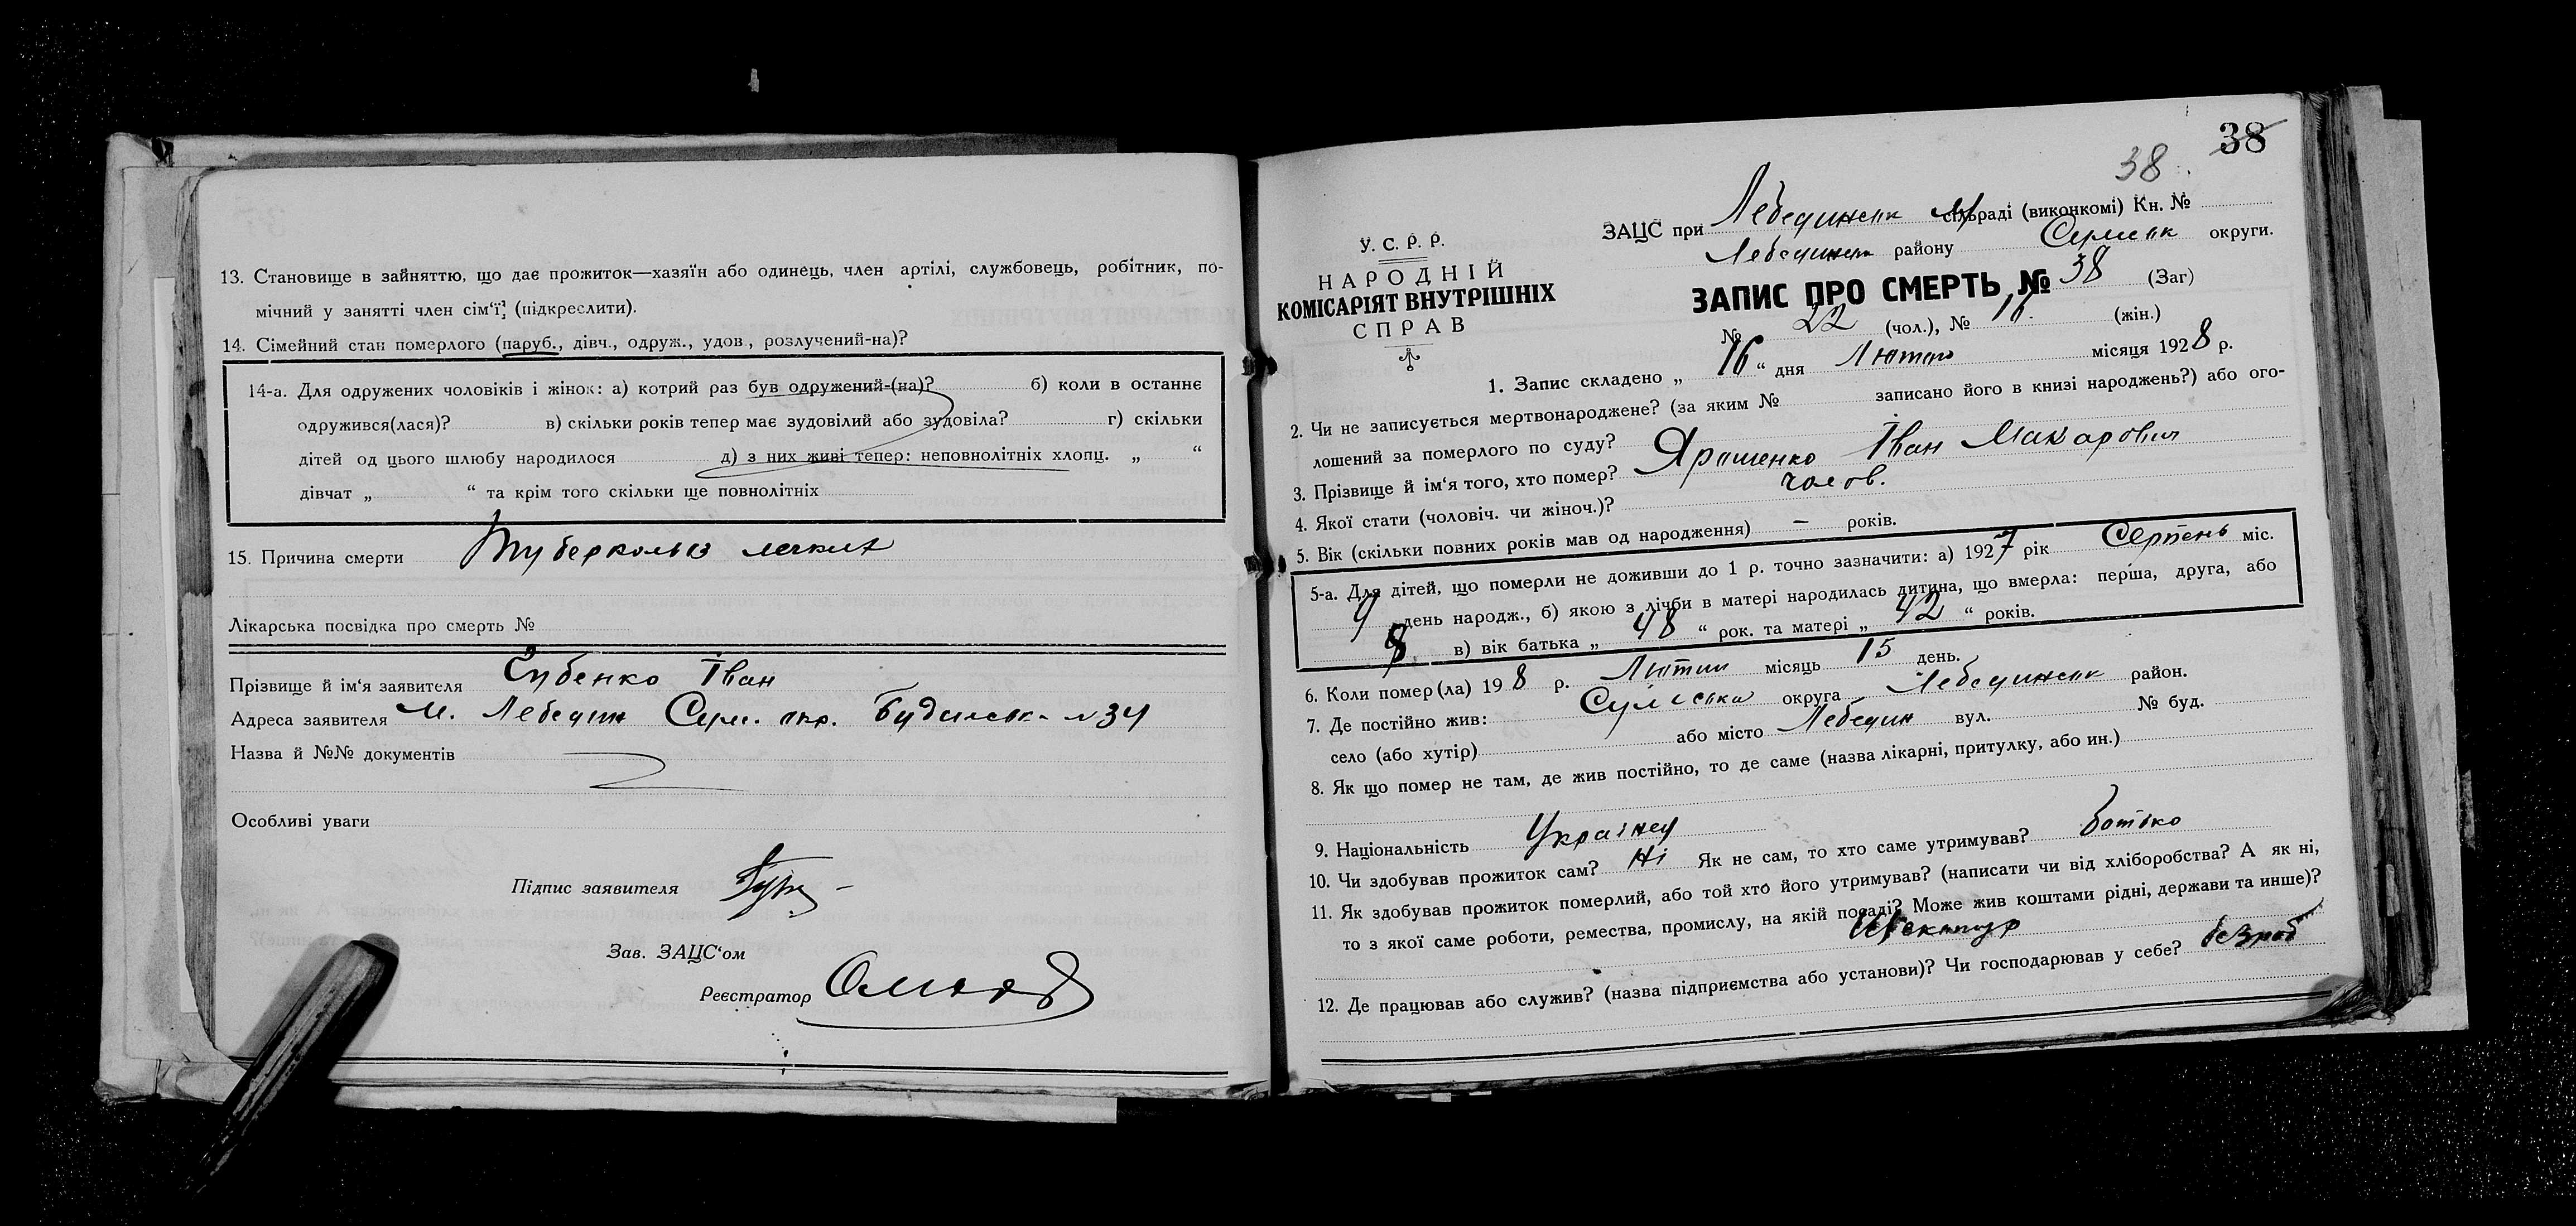 13. Становище в зайняттю, що дає прожиток—хазяїн або одинець, член артілі, службовець, робітник, по-
мічний у занятті член сім‘ї, (підкреслити).
14. Сімейний стан померлого (паруб., дівч., одруж., удов., розлучений-на)?
14-а. Для одружених чоловіків і жінок: а) котрий раз був одружений-(на)? б) коли в останнє
одружився(лася)? в) скільки років тепер має зудовілий або зудовіла? г) скільки
дітей од цього шлюбу народилося д) з них живі тепер: неповнолітніх хлопц. „ “
дівчат „ “ та крім того скільки ще повнолітніх
15. Причина смерти Туберкольоз легких
Лікарська посвідка про смерть №
Прізвище й ім‘я заявителя Губенко Іван
Адреса заявителя м. Лебедин Сум. окр. Будильськ. №34
Назва й №№ документів
Особливі уваги
Підпис заявителя
Зав. ЗАЦС‘ом
Реєстратор
38
38
ЗАЦС при Лебединськ сільраді (виконкомі) Кн. №
Лебединськ району Сумськ округи.
У. С. Р. Р.
НАРОДНІЙ
КОМІСАРІЯТ ВНУТРІШНІХ
СПРАВ
ЗАПИС ПРО СМЕРТЬ № 38 (Заг)
№ 22 (чол.), № 16. (жін.)
1. Запис складено „ 16 “ дня Лютого місяця 1928 р.
2. Чи не записується мертвонароджене? (за яким № записано його в книзі народжень?) або ого-
лошений за померлого по суду?
3. Прізвище й ім‘я того, хто помер? Ярошенко Іван Макарович
4. Якої стати (чоловіч. чи жіноч.)? чолов.
5. Вік (скільки повних років мав од народження) – років.
5-а. Для дітей, що померли не доживши до 1 р. точно зазначити: а) 1927 рік Серпень міс.
9 день народж., б) якою з лічби в матері народилась дитина, що вмерла: перша, друга, або
8 в) вік батька „ 48 “ рок. та матері „ 42 “ років.
6. Коли помер(ла) 198 р. Лютий місяць 15 день.
7. Де постійно жив: Сумська округа Лебединськ район.
село (або хутір) або місто Лебедин вул. № буд.
8. Як що помер не там, де жив постійно, то де саме (назва лікарні, притулку, або ин.)
9. Національність Українец
10. Чи здобував прожиток сам? Ні Як не сам, то хто саме утримував? батько
11. Як здобував прожиток померлий, або той хто його утримував? (написати чи від хліборобства? А як ні,
то з якої саме роботи, ремества, промислу, на якій посаді? Може жив коштами рідні, держави та инше)?
12. Де працював або служив? (назва підприємства або установи)? Чи господарював у себе? безроб